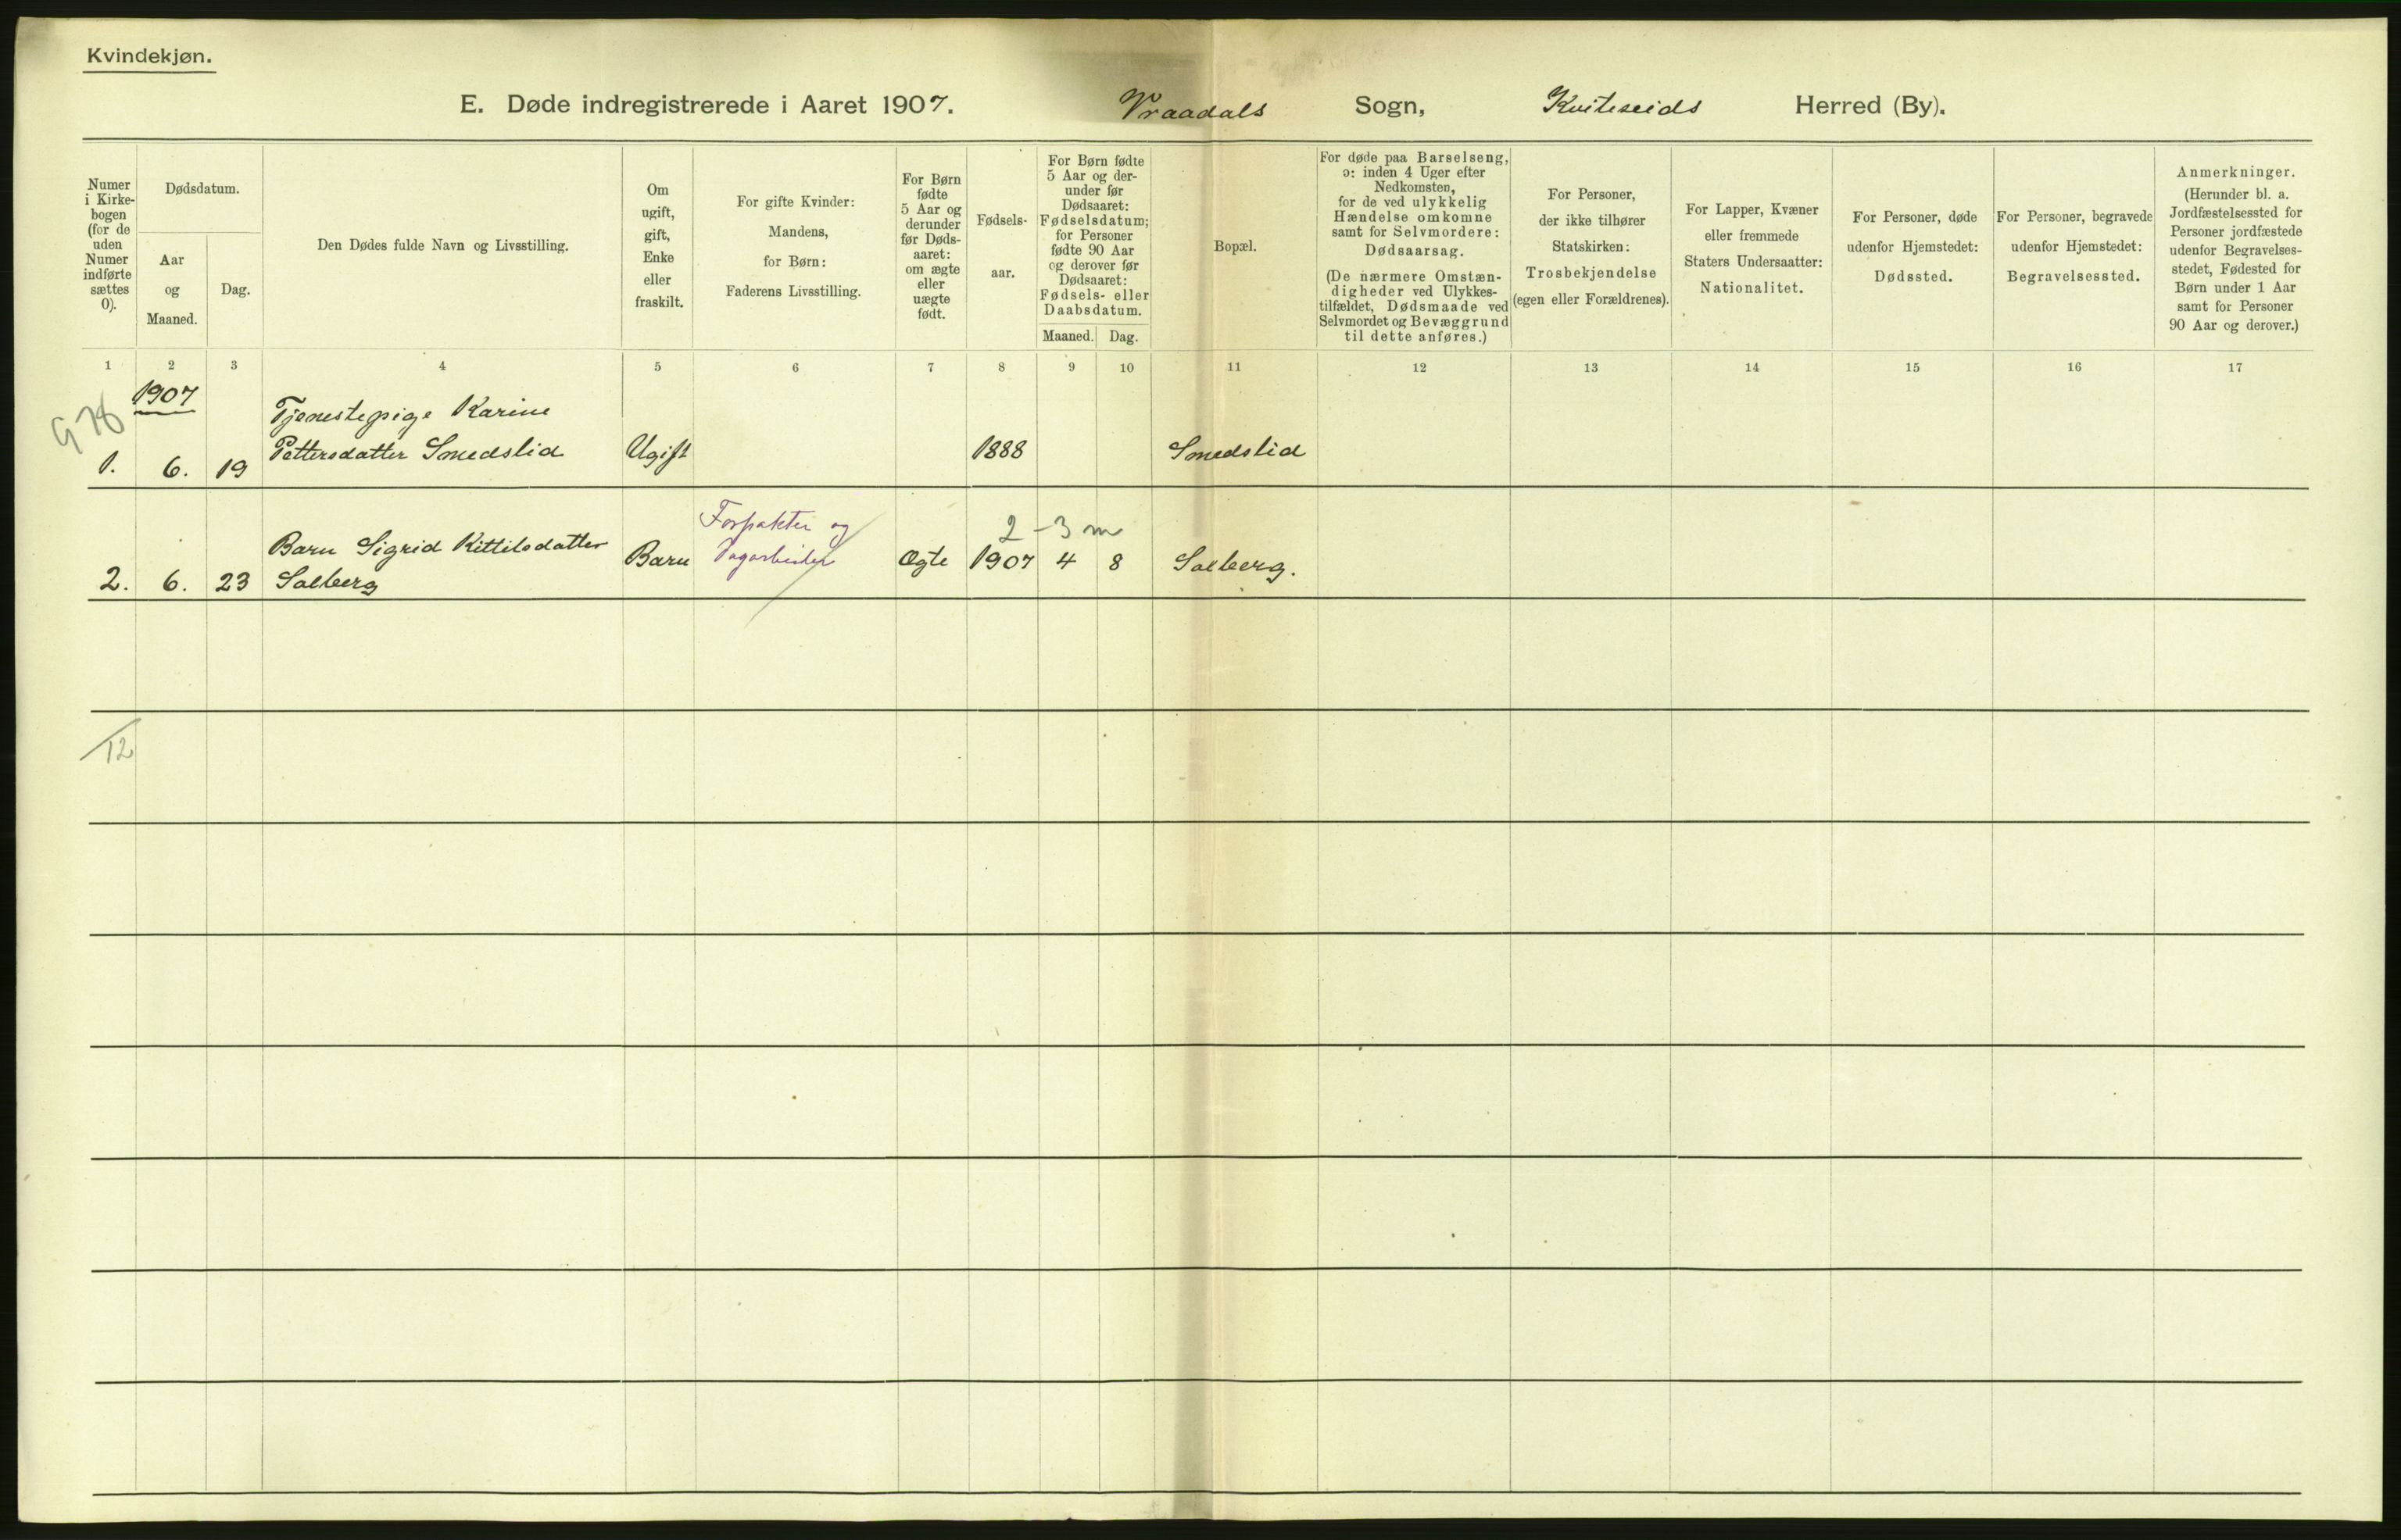 Kvindekjøn.
E. Døde indregistrerede i Aaret 1907. Vraadals Sogn, Kviteseids Herred (By).
Numer
i Kirke-
bogen
(for de
uden
Numer
indførte
sættes
0).
Dødsdatum.
Aar
og
Maaned.
Dag.
Den Dødes fulde Navn og Livsstilling.
Om
ugift,
gift,
Enke
eller
fraskilt.
For gifte Kvinder:
Mandens,
for Børn:
Faderens Livsstilling.
For Børn
fødte
5 Aar og
derunder
før Døds-
aaret:
om ægte
eller
uægte
født.
Fødsels-
aar.
For Børn fødte
5 Aar og der-
under før
Dødsaaret:
Fødselsdatum;
for Personer
fødte 90 Aar
og derover før
Dødsaaret:
Fødsels- eller
Daabsdatum.
Maaned. Dag.
Bopæl.
For døde paa Barselseng,
ɔ: inden 4 Uger efter
Nedkomsten,
for de ved ulykkelig
Hændelse omkomne
samt for Selvmordere:
Dødsaarsag.
(De nærmere Omstæn-
digheder ved Ulykkes-
tilfældet, Dødsmaade ved
Selvmordet og Bevæggrund
til dette anføres.)
For Personer,
der ikke tilhører
Statskirken:
Trosbekjendelse
(egen eller Forældrenes).
For Lapper, Kvæner
eller fremmede
Staters Undersaatter:
Nationalitet.
For Personer, døde
udenfor Hjemstedet:
Dødssted.
For Personer, begravede
udenfor Hjemstedet:
Begravelsessted.
Anmerkninger.
(Herunder bl. a.
Jordfæstelsessted for
Personer jordfæstede
udenfor Begravelses-
stedet, Fødested for
Børn under 1 Aar
samt for Personer
90 Aar og derover.)
1 2 3 4 5 6 7 8 9 10 11 12 13 14 15 16 17
1907
Tjenestepige Karine
1. 6. 19 Pettersdatter Smedslid Ugift 1888 Smedslid
Forpakter og
2 - 3 m
Barn Sigrid Kittilsdatter Barn Dagarbeider Ægte 1907 4 8 Solberg.
2. 6. 23 Solberg
12